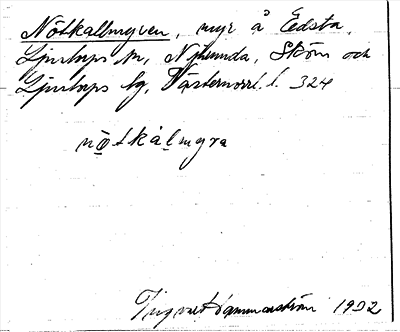 Nötkallmyren, myr å Edsta,
Ljustorps sn, Njurunda, Sköns och
Ljustorps tg, Västernorrl. l. 324
nötkålmyra
Tryggve Hammarström 1932